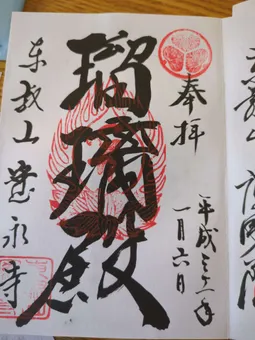 奉拝
平成三一年
一月六日
瑠璃殿
東叡山 寛永寺